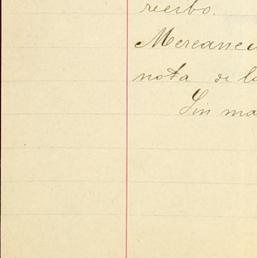 recibo.
Mercanci
nota de la
Sin ma